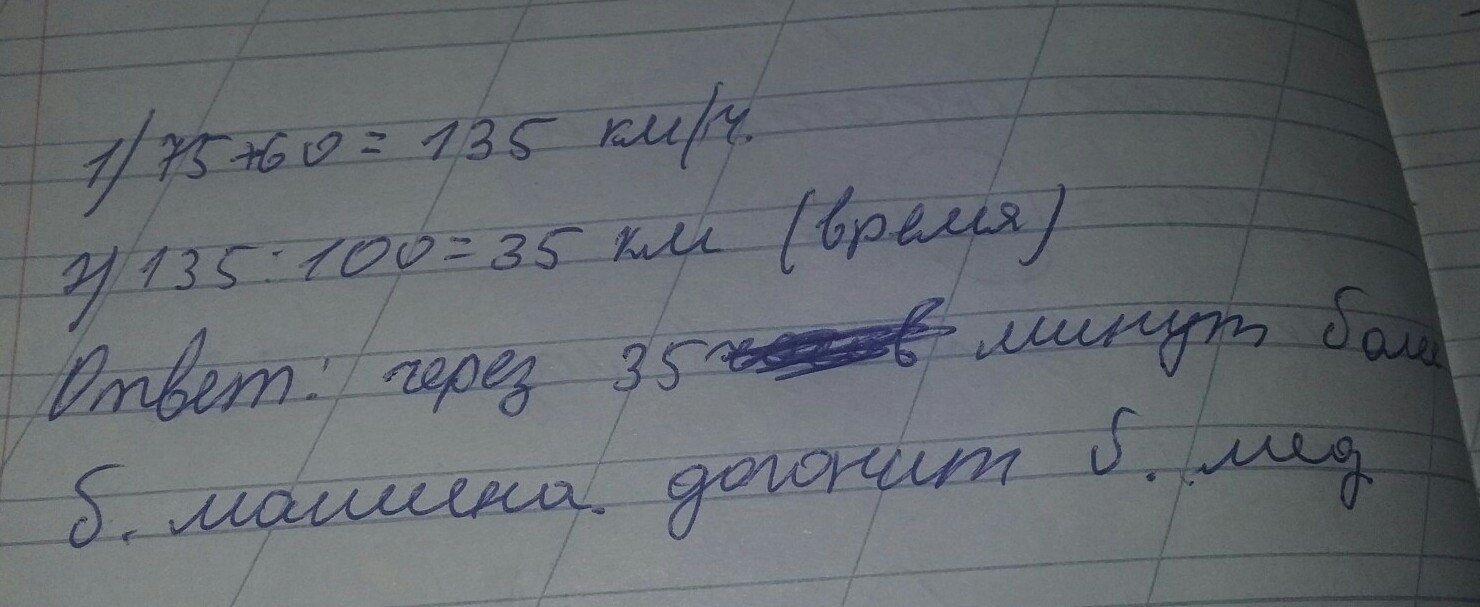 1) 75+60 = 135 км/ч.
2) 135 : 100 = 35 км (время)
Ответ: через 35 минут боле
б. машина. догонит б. мед